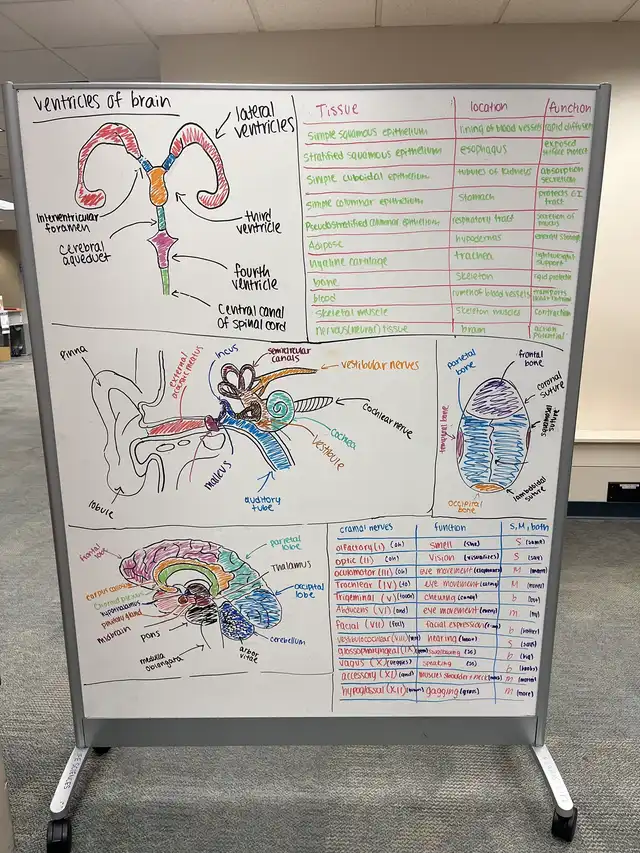 ventricles of brain
lateral ventricles
Interventricular foramen
Cerebral aqueduct
third ventricle
fourth ventricle
Central canal of spinal cord
Tissue location function
simple squamous epithelium lining of blood vessels rapid diffusion
stratified squamous epithelium esophagus exposed surface protect
simple cuboidal epithelium tubules of kidneys absorption secretion
simple columnar epithelium stomach protects G.I. tract
Pseudostratified columnar epithelium respiratory tract secretion of mucus
Adipose hypodermis energy storage
hyaline cartilage trachea support
bone skeleton rigid
blood lumen of blood vessels
skeletal muscle skeleton muscles contraction
nervous (neural) tissue brain action potential
Pinna
external acoustic meatus
incus
semicircular canals
vestibular nerves
cochlear nerve
cochlea
vestibule
malleus
auditory tube
lobule
parietal bone
frontal bone
coronal suture
temporal bone
squamous suture
lambdoidal suture
occipital bone
frontal lobe
parietal lobe
corpus callosum
Thalamus
hypothalamus
pituitary gland
occipital lobe
midbrain
pons
medulla oblongata
arbor vitae
cerebellum
cranial nerves function S, M, both
olfactory (I) (oh) smell S (some)
optic (II) (oh) vision S (say)
oculomotor (III) (oh) eye movement M
Trochlear (IV) (to) eye movement M (money)
Trigeminal (V) (touch) chewing b
Abducens (VI) (and) eye movement m (my)
facial (VII) (feel) facial expression b (brother)
vestibulocochlear (VIII) hearing S (says)
glossopharyngeal (IX) swallowing b (big)
vagus (X) speaking b
accessory (XI) (and) muscles shoulder + neck m
hypoglossal (XII) gagging m (more)